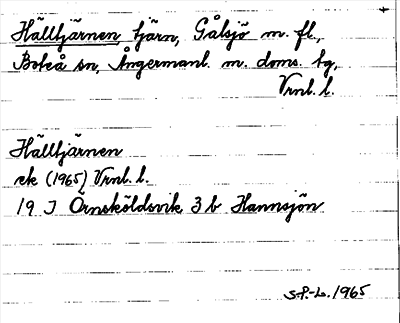 Hälltjärnen tjärn, Gålsjö m. fl.,
Boteå sn, Ångermanl. m. doms. tg,
Vrnl. l.
Hälltjärnen
ek (1965) Vrnl. l.
19 J Örnsköldsvik 3 b Hannsjön
S.P.-L. 1965